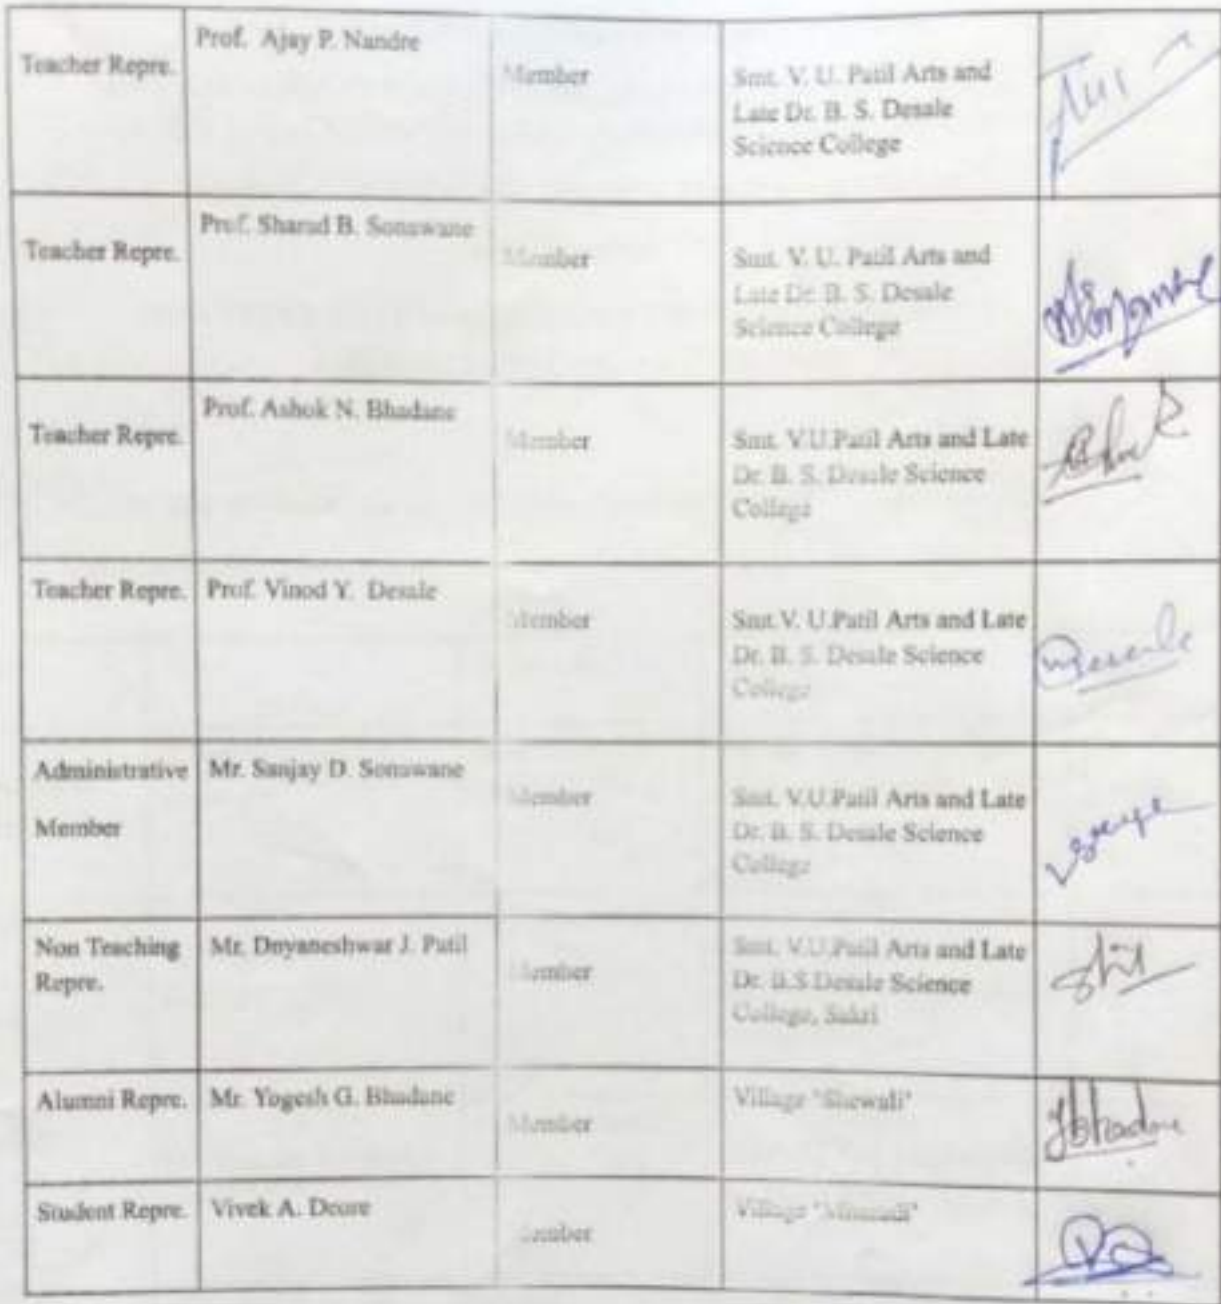 Teacher Repre.
Prof. Ajay P. Nandre
Member
Smt. V. U. Patil Arts and
Late Dr. B. S. Desale
Science College
Teacher Repre.
Prof. Sharad B. Sonawane
Member
Smt. V. U. Patil Arts and
Late Dr. B. S. Desale
Science College
Teacher Repre.
Prof. Ashok N. Bhadane
Member
Smt. V.U.Patil Arts and Late
Dr. B. S. Desale Science
College
Teacher Repre.
Prof. Vinod Y. Desale
Member
Smt.V. U.Patil Arts and Late
Dr. B. S. Desale Science
College
Administrative
Member
Mr. Sanjay D. Sonawane
Member
Smt. V.U.Patil Arts and Late
Dr. B. S. Desale Science
College
Non Teaching
Repre.
Mr. Dnyaneshwar J. Patil
Member
Smt. V.U.Patil Arts and Late
Dr. B.S.Desale Science
College, Sakri
Alumni Repre.
Mr. Yogesh G. Bhadane
Member
Village "Shewali"
Ybhadane
Student Repre.
Vivek A. Deore
Member
Village